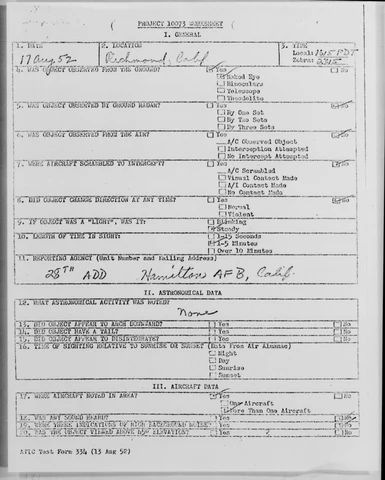 PROJECT 10073 WORKSHEET
I. GENERAL
1. DATE
2. LOCATION
3. TIME
17 Aug 52
Richmond, Calif
Local: 1615 PDT
Zebra: 2315
4. WAS OBJECT OBSERVED FROM THE GROUND?
Yes
No
Naked Eye
Binoculars
Telescope
Theodolite
5. WAS OBJECT OBSERVED BY GROUND RADAR?
Yes
No
By One Set
By Two Sets
By Three Sets
6. WAS OBJECT OBSERVED FROM THE AIR?
Yes
No
A/C Observed Object
Interception Attempted
No Intercept Attempted
7. WERE AIRCRAFT SCRAMBLED TO INTERCEPT?
Yes
No
A/C Scrambled
Visual Contact Made
A/I Contact Made
No Contact Made
8. DID OBJECT CHANGE DIRECTION AT ANY TIME?
Yes
No
Normal
Violent
9. IF OBJECT WAS A "LIGHT", WAS IT:
Blinking
Steady
10. LENGTH OF TIME IN SIGHT:
1-15 Seconds
1-5 Minutes
Over 10 Minutes
11. REPORTING AGENCY (Unit Number and Mailing Address)
28TH ADD Hamilton AFB, Calif.
II. ASTRONOMICAL DATA
12. WHAT ASTRONOMICAL ACTIVITY WAS NOTED?
None
13. DID OBJECT APPEAR TO ARCH DOWNWARD?
Yes
No
14. DID OBJECT HAVE A TAIL?
Yes
No
15. DID OBJECT APPEAR TO DISINTEGRATE?
Yes
No
16. TIME OF SIGHTING RELATIVE TO SUNRISE OR SUNSET (Data From Air Almanac)
Night
Day
Sunrise
Sunset
III. AIRCRAFT DATA
17. WERE AIRCRAFT NOTED IN AREA?
Yes
No
One Aircraft
More Than One Aircraft
18. WAS ANY SOUND HEARD?
Yes
No
19. WERE THERE INDICATIONS OF HIGH BACKGROUND NOISE?
Yes
No
20. WAS THE OBJECT VIEWED ABOVE 45° ELEVATION?
Yes
?
No
ATIC Test Form 334 (13 Aug 52)